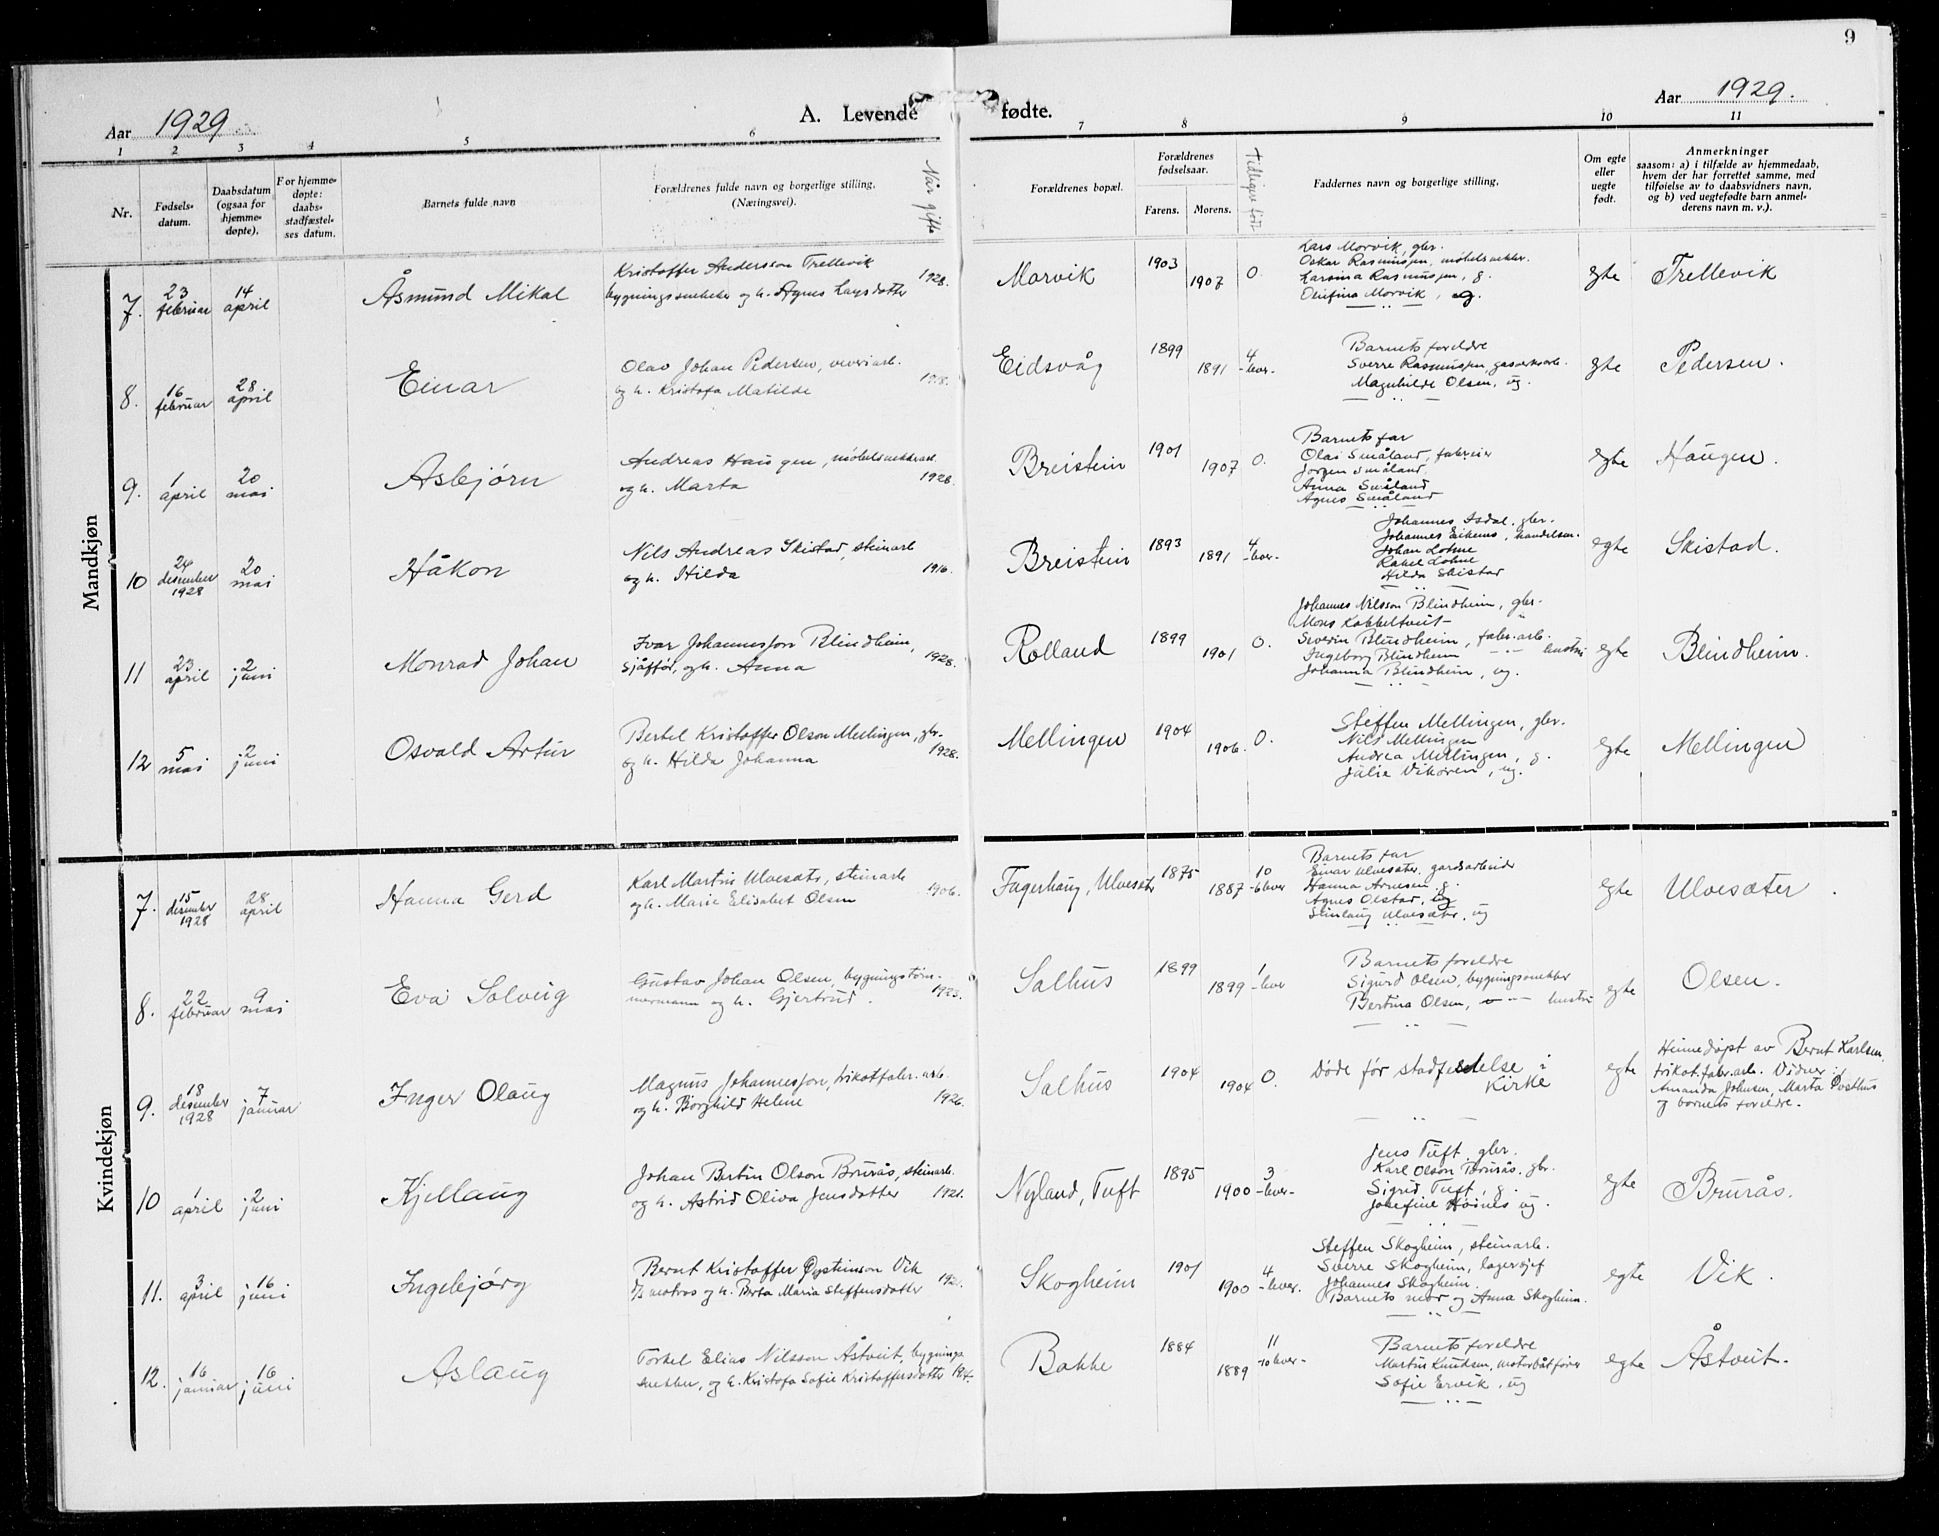 9
Aar 1929
A. Levende fødte.
Aar 1929.
1 2 3 4 5 6 7 8 9 10 11
Nr.
Fødsels-
datum.
Daabsdatum
(ogsaa for
hjemme-
døpte).
For hjemme-
døpte:
daabs-
stadfæstel-
ses datum.
Barnets fulde navn
Forældrenes fulde navn og borgerlige stilling.
(Næringsvei).
Når gifte
Forældrenes bopæl.
Forældrenes
fødselsaar.
Farens. Morens.
tidligere født
Faddernes navn og borgerlige stilling.
Om egte
eller
uegte
født.
Anmerkninger
saasom: a) i tilfælde av hjemmedaab,
hvem der har forrettet samme, med
tilføielse av to daabsvidners navn,
og b) ved uegtefødte barn anmel-
derens navn m. v.).
Mandkjøn
7. 23 februar 14 april Åsmund Mikal
Kristoffer Andersson Trellevik
bygningssnekker og h. Agnes Larsdotter 1928.
Morvik 1903 1907 0.
Lars Morvik, gbr.
Oskar Rasmussen, møbelsnekker.
Larsina Rasmussen, g.
Olufina Morvik, ug.
egte Trellevik
8. 16 februar 28. april Einar
Olav Johan Pedersen, veveriarb.
og h. Kristofa Matilde
Eidsvåg 1899 1891 4 -lever-
Barnets foreldre
Sverre Rasmussen, gasverksarb.
Magnhilde Olsen, ug.
egte Pedersen.
9. 1 april 20 mai Asbjørn
Andreas Haugen, møbelsnekkerarb.
og h. Marta 1928.
Breistein 1901 1907 0.
Barnets far
Olai Småland, fabreier
Jørgen Småland,
Anna Småland
Agnes Småland
egte Haugen.
10 24 desember 1928 20 mai Håkon
Nils Andreas Skistad, steinarb
og h. Hilda 1916.
Breistein 1893 1891 4 -lever-
Johannes Isdal, gbr.
Johannes Eikemo, handelsm.
Johan Lohne
Rakel Lohne
Hilda Skistad
egte Skistad.
11 23 april 2 juni Monrad Johan
Ivar Johannessen Blindheim,
sjåffør, og h. Anna 1928.
Rolland 1899 1901 0.
Johannes Nilsson Blindheim, gbr.
Mons Kobbeltveit
Severin Blindheim, fabr.arb.
Ingeborg Blindheim — " — hustru
Johanna Blindheim, ug.
egte Blindheim.
12 5 mai 2 juni Osvald Artur
Bertel Kristoffer Olson Mellingen, gbr.
og h. Hilda Johanna 1928.
Mellingen 1904 1906. 0.
Steffen Mellingen, gbr.
Nils Mellingen
Andrea Mellingen, g.
Julie Vikøren, ug.
egte Mellingen
Kvindekjøn
7. 15 desember 1928 28 april Hanna Gerd
Karl Martin Ulvesæter, steinarb
og h. Marie Elisabet Olsen 1906.
Fagerhaug, Ulvesæter 1875 1887 10 -6 lever
Barnets far
Einar Ulvesæter, gardsarbeider
Hanna Arnesen g.
Agnes Olstad, ug
Steinlaug Ulvesæter, ug
egte Ulvesæter.
8. 22 februar 9 mai Eva Solveig
Gustav Johan Olsen, bygningstøm-
mermann og h. Gjertrud. 1923.
Salhus 1899 1899 1 -lever
Barnets foreldre
Sigurd Olsen, bygningssnekker
Bertina Olsen, — " — hustru
egte Olsen.
9. 18 desember 1928 7 januar Inger Olaug
Magnus Johannessen, trikotfabr. arb.
og h. Borghild Helene 1926.
Salhus 1904 1904 0.
Døde før stadfestelse i
Kirke
egte
Heimedøpt av Bernt Karlsen,
trikot.fabr.arb. Vidner:
Amanda Johnsen, Marta Østhus
og barnets foreldre.
10 1 april 2 juni Kjellaug
Johan Bertin Olson Brurås, steinarb.
og h. Astrid Oliva Jensdotter 1921.
Nyland, Tuft 1895 1900 3 -lever-
Jens Tuft, gbr.
Karl Olson Brurås. gbr.
Sigrid Tuft, g.
Josefine Høsnes ug.
egte Brurås.
11. 3 april 16 juni Ingebjørg
Bernt Kristoffer Øysteinson Vik
matros og h. Berta Maria Steffensdotter
Skogheim 1901 1900 4 -lever.
Steffen Skogheim, steinarb.
Sverre Skogheim, lagersjef
Johannes Skogheim.
Barnets mor og Anna Skogheim.
egte Vik.
12. 16 januar 16 juni Aslaug
Torkel Elias Nilsson Åstveit, bygnings
snekker, og h. Kristofa Sofie Kristoffersdotter
Bakke 1884 1889 11 -10 lever-
Barnets foreldre
Martin Knudsen, motorbåtfører
Sofie Ervik, ug
egte Åstveit.